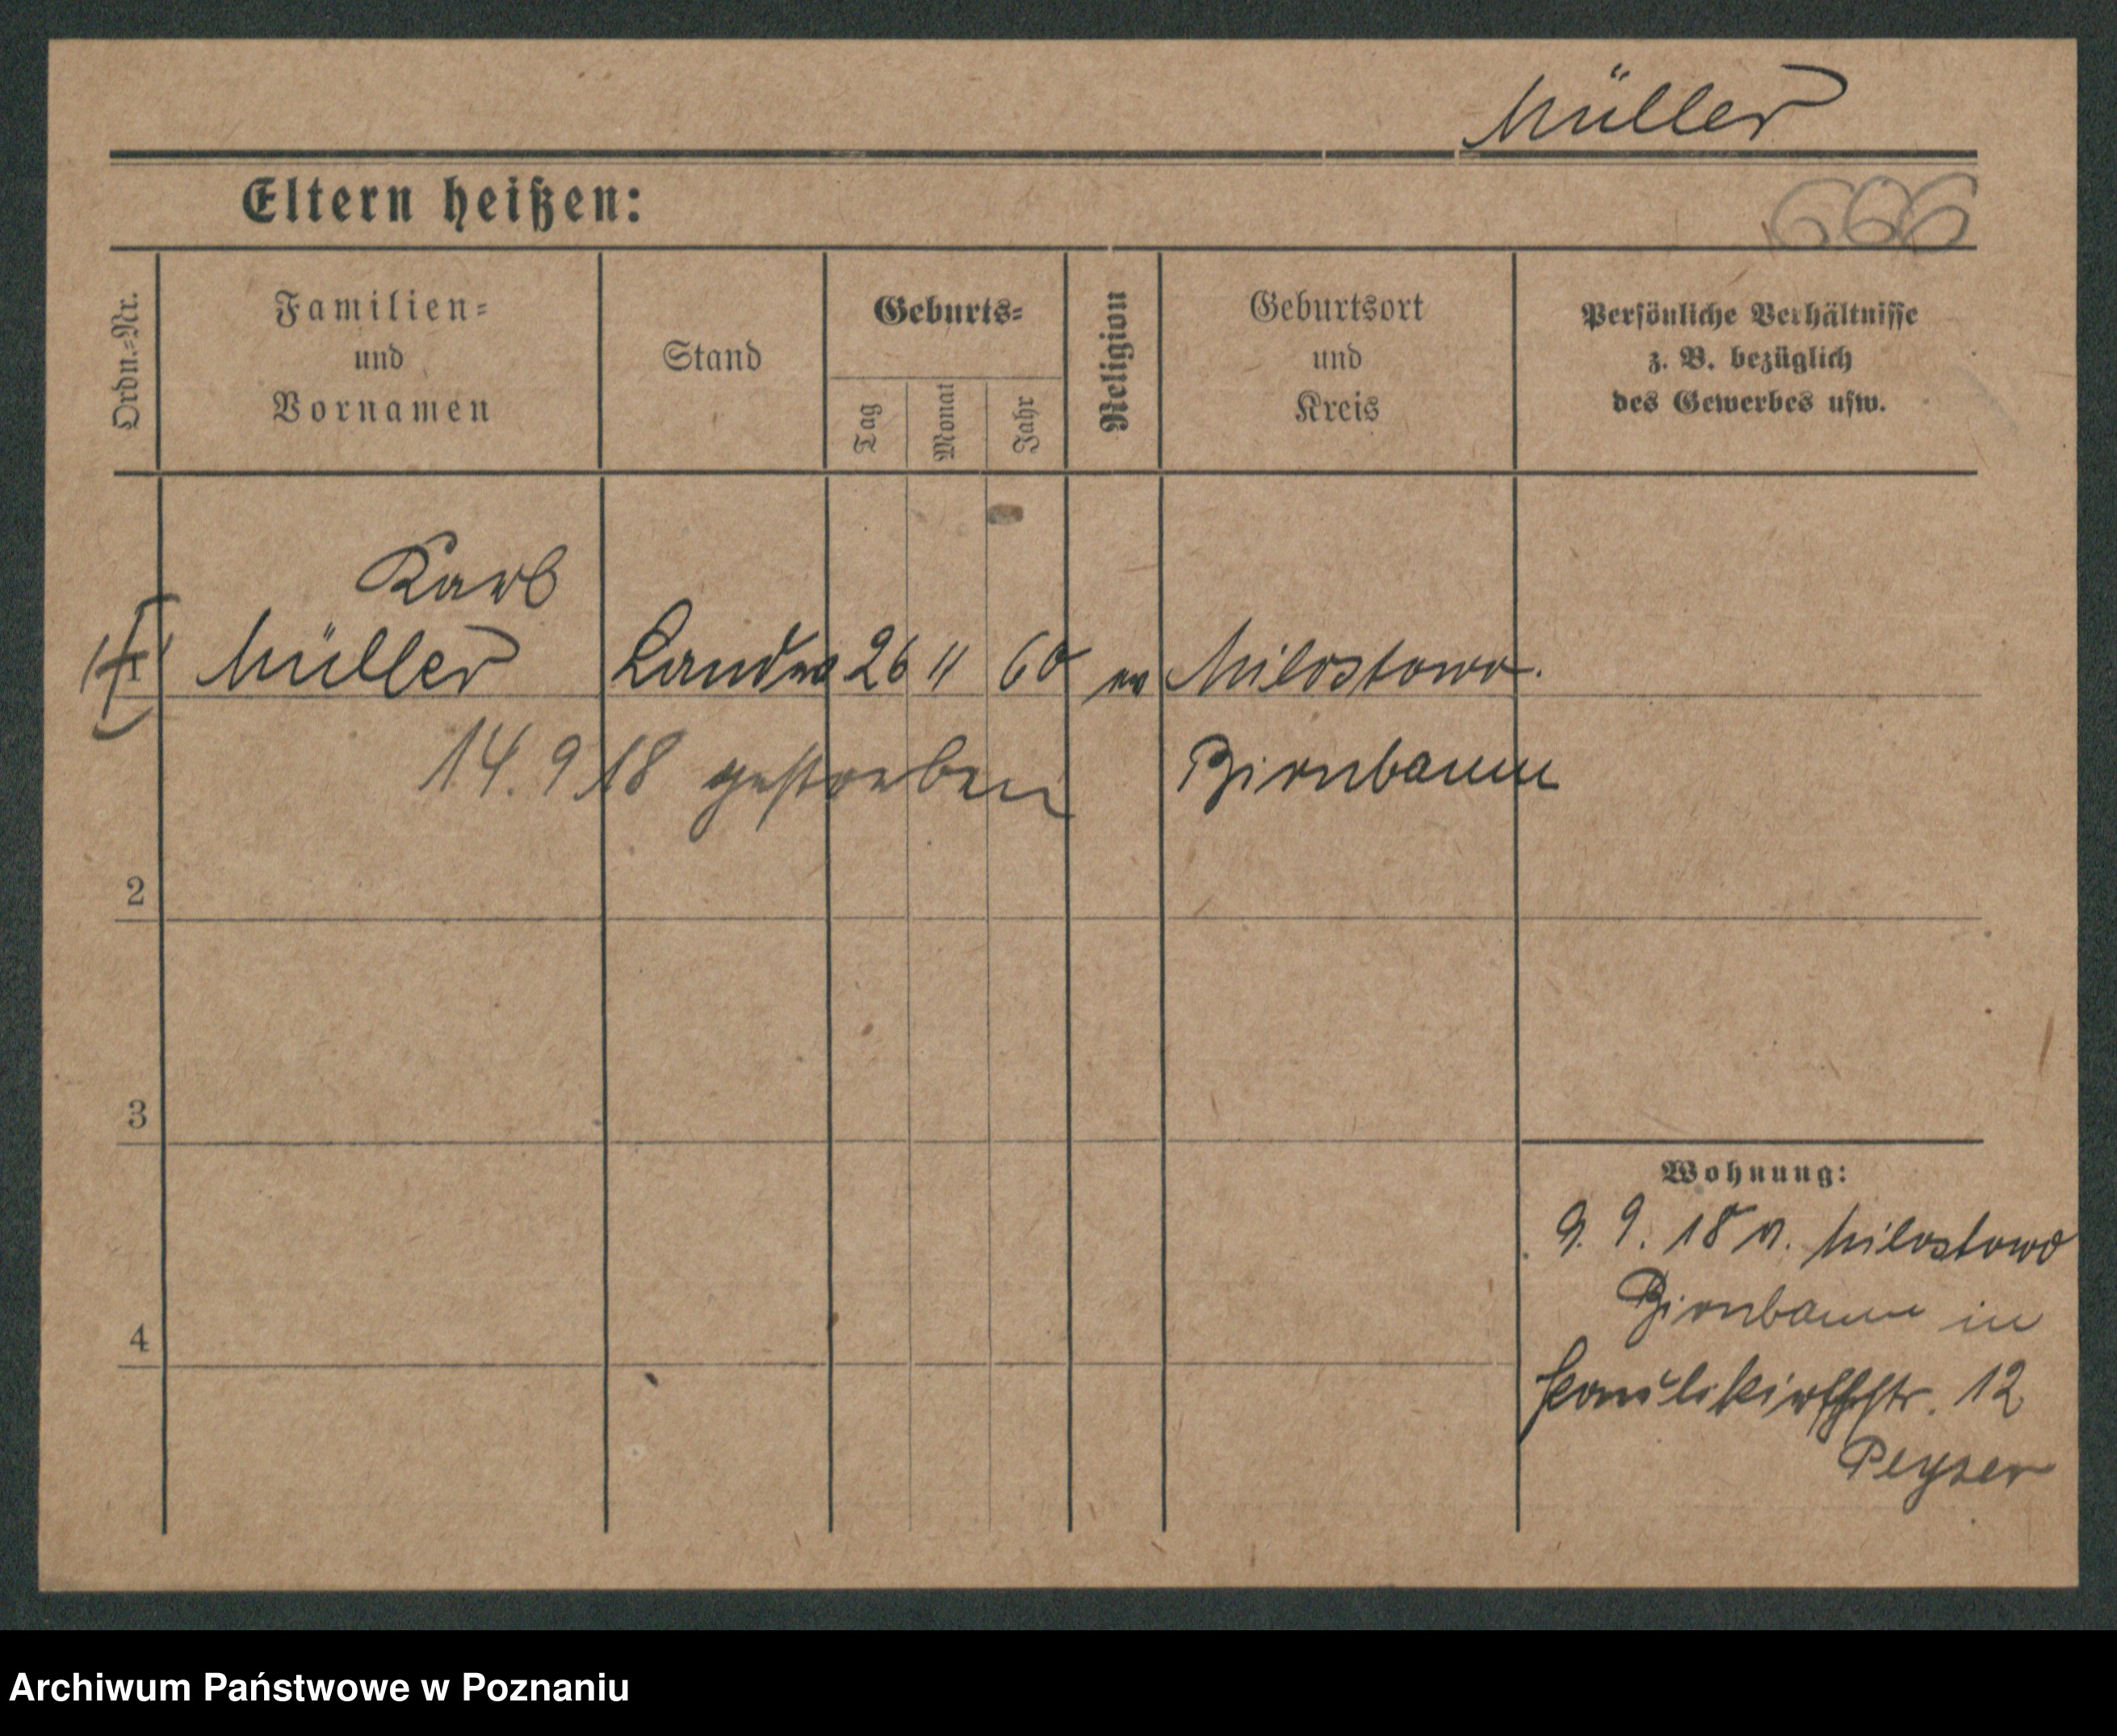 Müller
Eltern heißen:
666
Ordn.-Nr.
Familien-
und
Vornamen
Stand
Geburts-
Tag
Monat
Jahr
Religion
Geburtsort
und
Kreis
Persönliche Verhältnisse
z. B. bezüglich
des Gewerbes usw.
Karl
Müller Landw 26 11 60 ev Milostowo.
14.9 18 gestorben Birnbaum
2
3
Wohnung:
9. 9. 18 v. Milostowo
4
Birnbaum in
Paulikirchstr. 12
Peyser
Archiwum Państwowe w Poznaniu